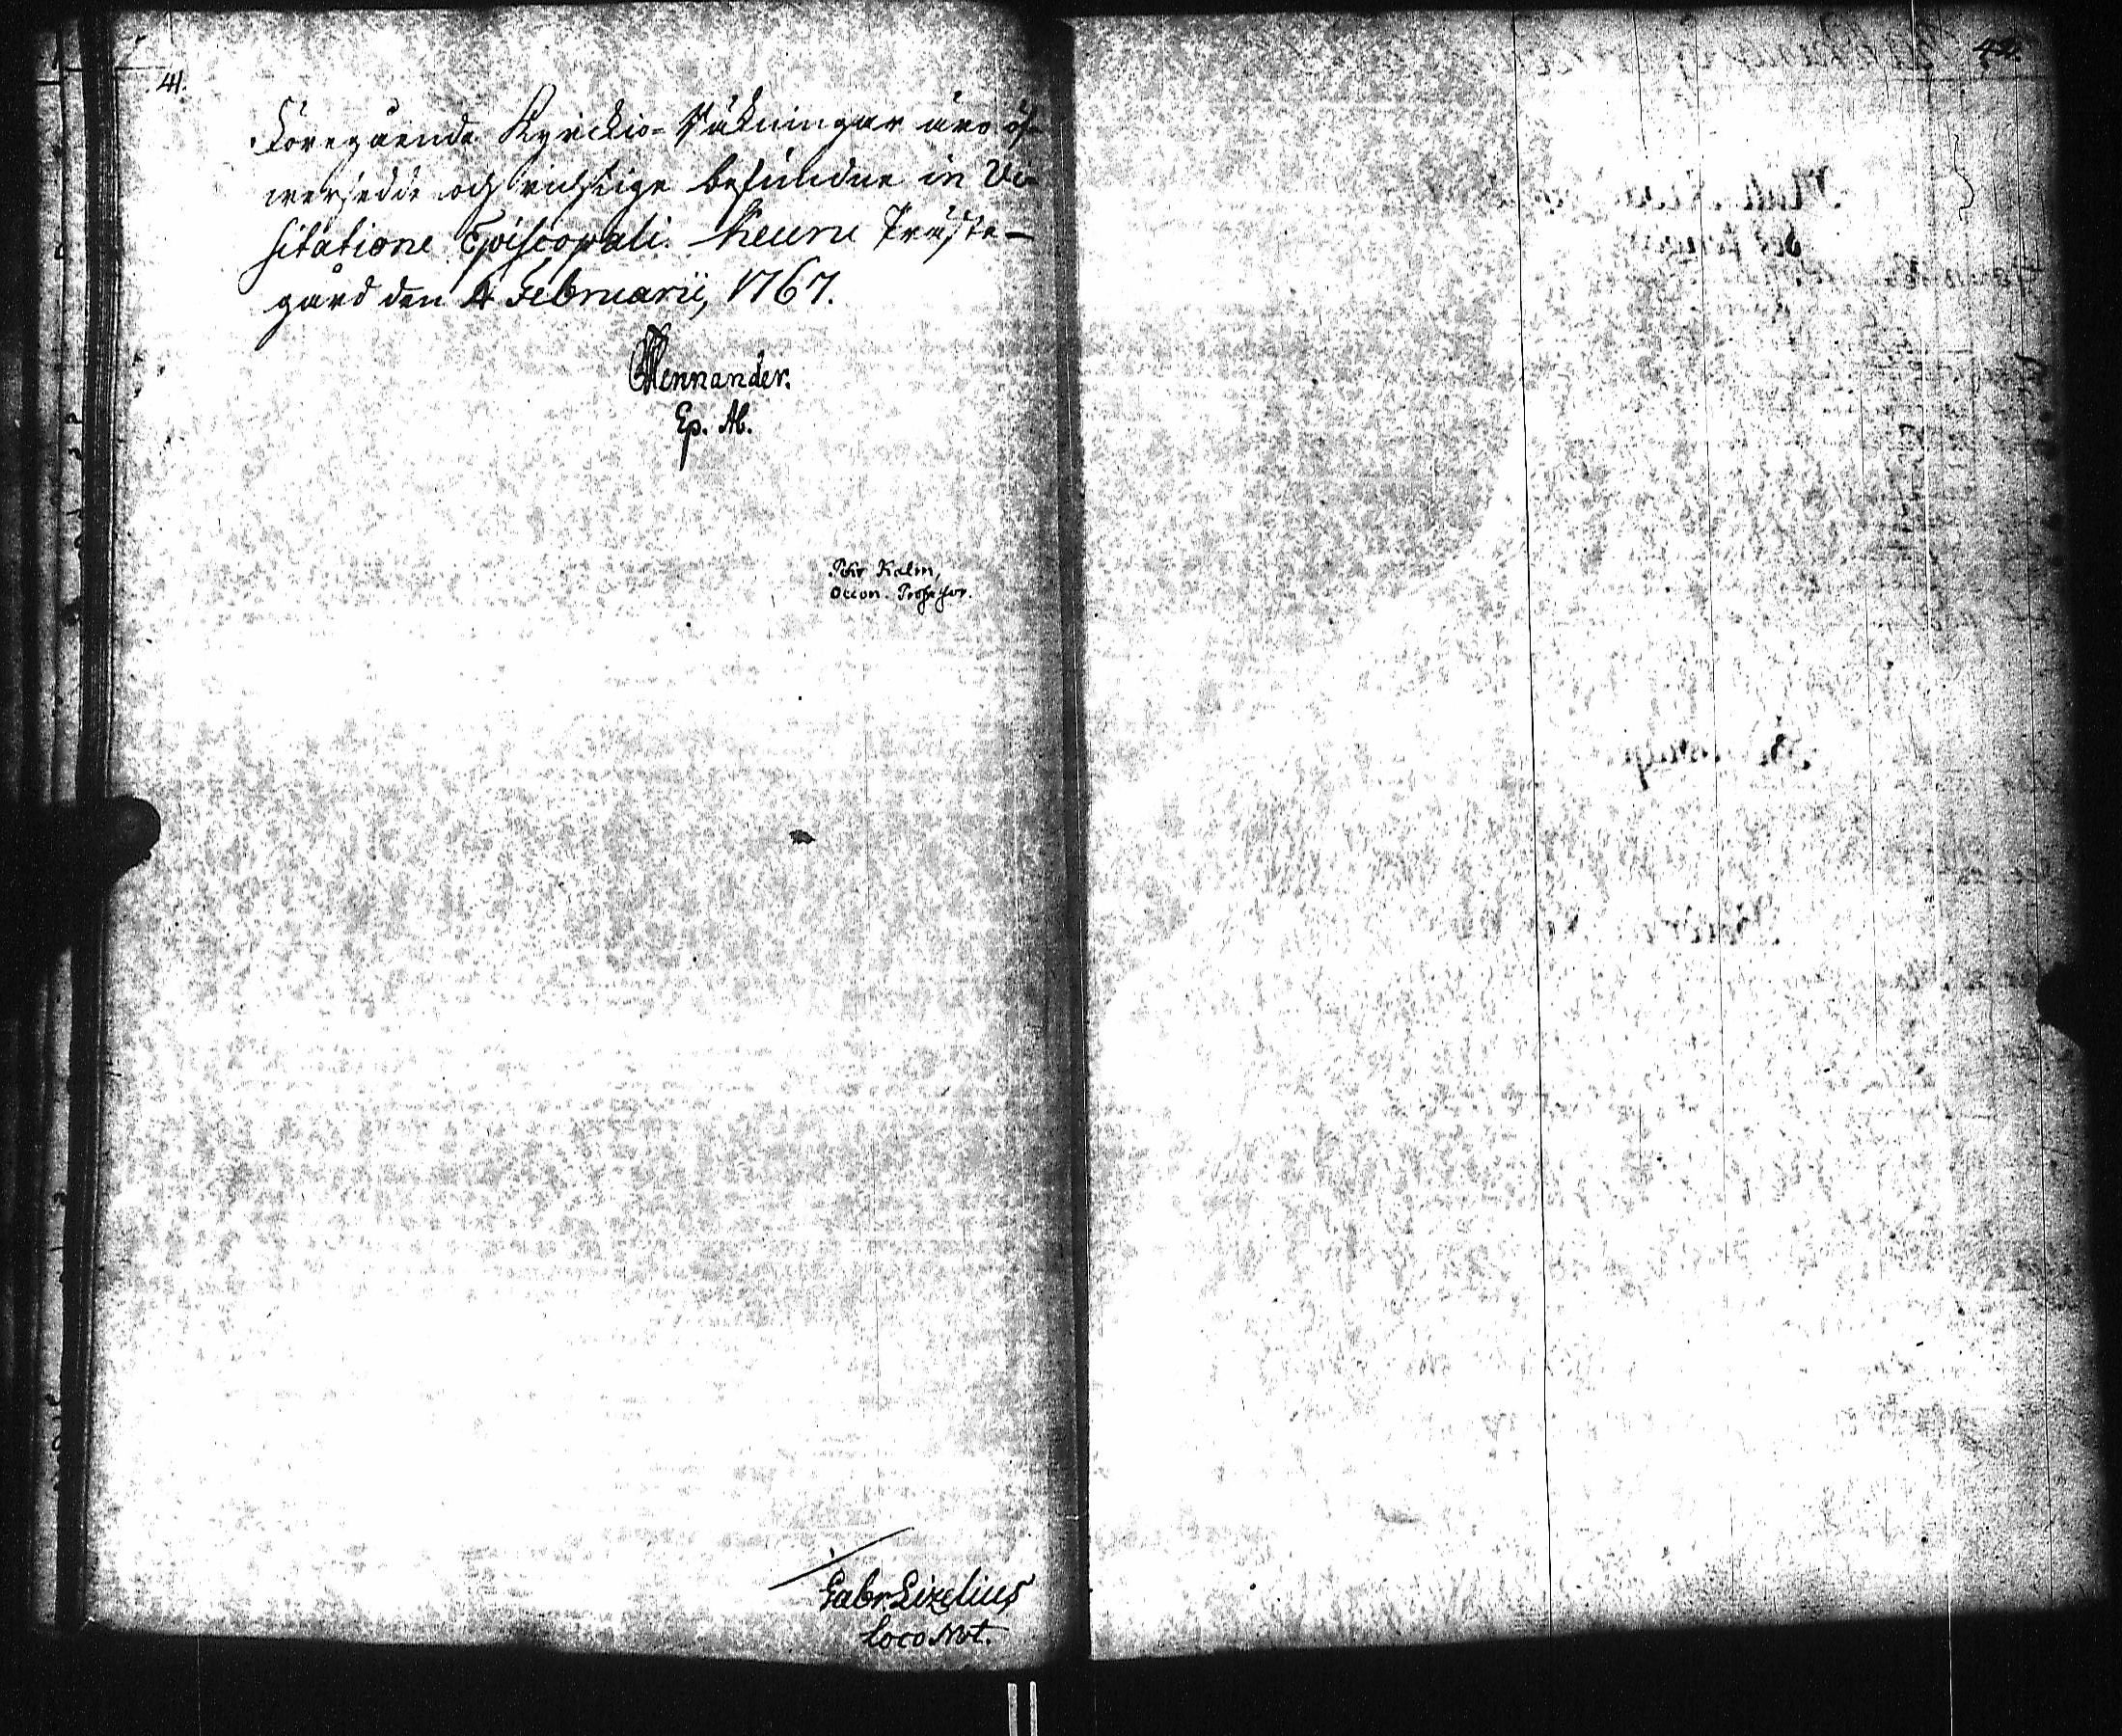 41.
Föregående Kyrckio-Räkningar äro öf-
wersedde och richtige befundne in Vi-
sitatione Episcopali. Keuru Präste-
gård den 4 Februarii, 1767.
CFMennander.
Ep. Ab.
Pehr Kalm,
Oecon. Professor.
Gabr. Lizelius
Loco Not.
42.